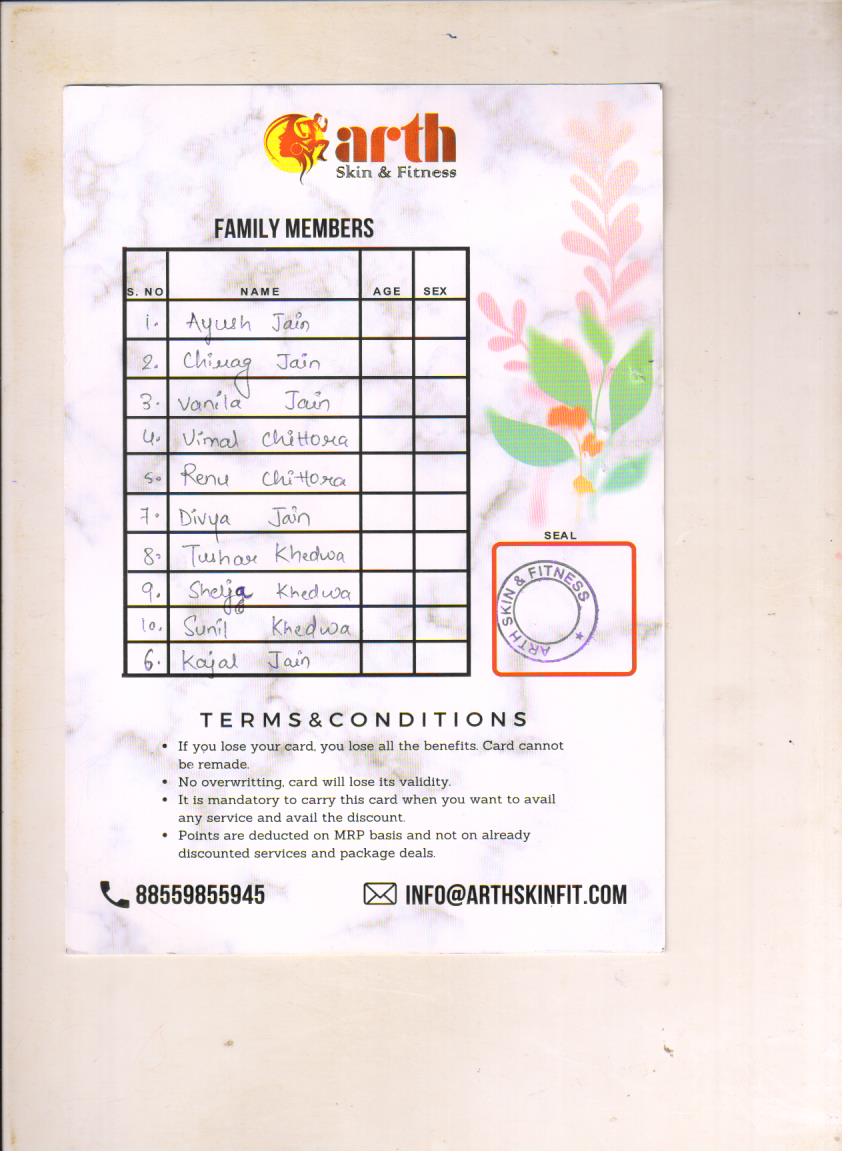 arth
Skin & Fitness
FAMILY MEMBERS
S. NO NAME AGE SEX
1. Ayush Jain
2. Chirag Jain
3. Vanila Jain
4. Vimal Chittora
5. Renu Chittora
7. Divya Jain
8. Tushar Khedwa
9. Shelja Khedwa
10. Sunil Khedwa
6. Kajal Jain
SEAL
ARTH SKIN & FITNESS
TERMS&CONDITIONS
• If you lose your card, you lose all the benefits. Card cannot
be remade.
• No overwritting, card will lose its validity.
• It is mandatory to carry this card when you want to avail
any service and avail the discount.
• Points are deducted on MRP basis and not on already
discounted services and package deals.
88559855945 INFO@ARTHSKINFIT.COM